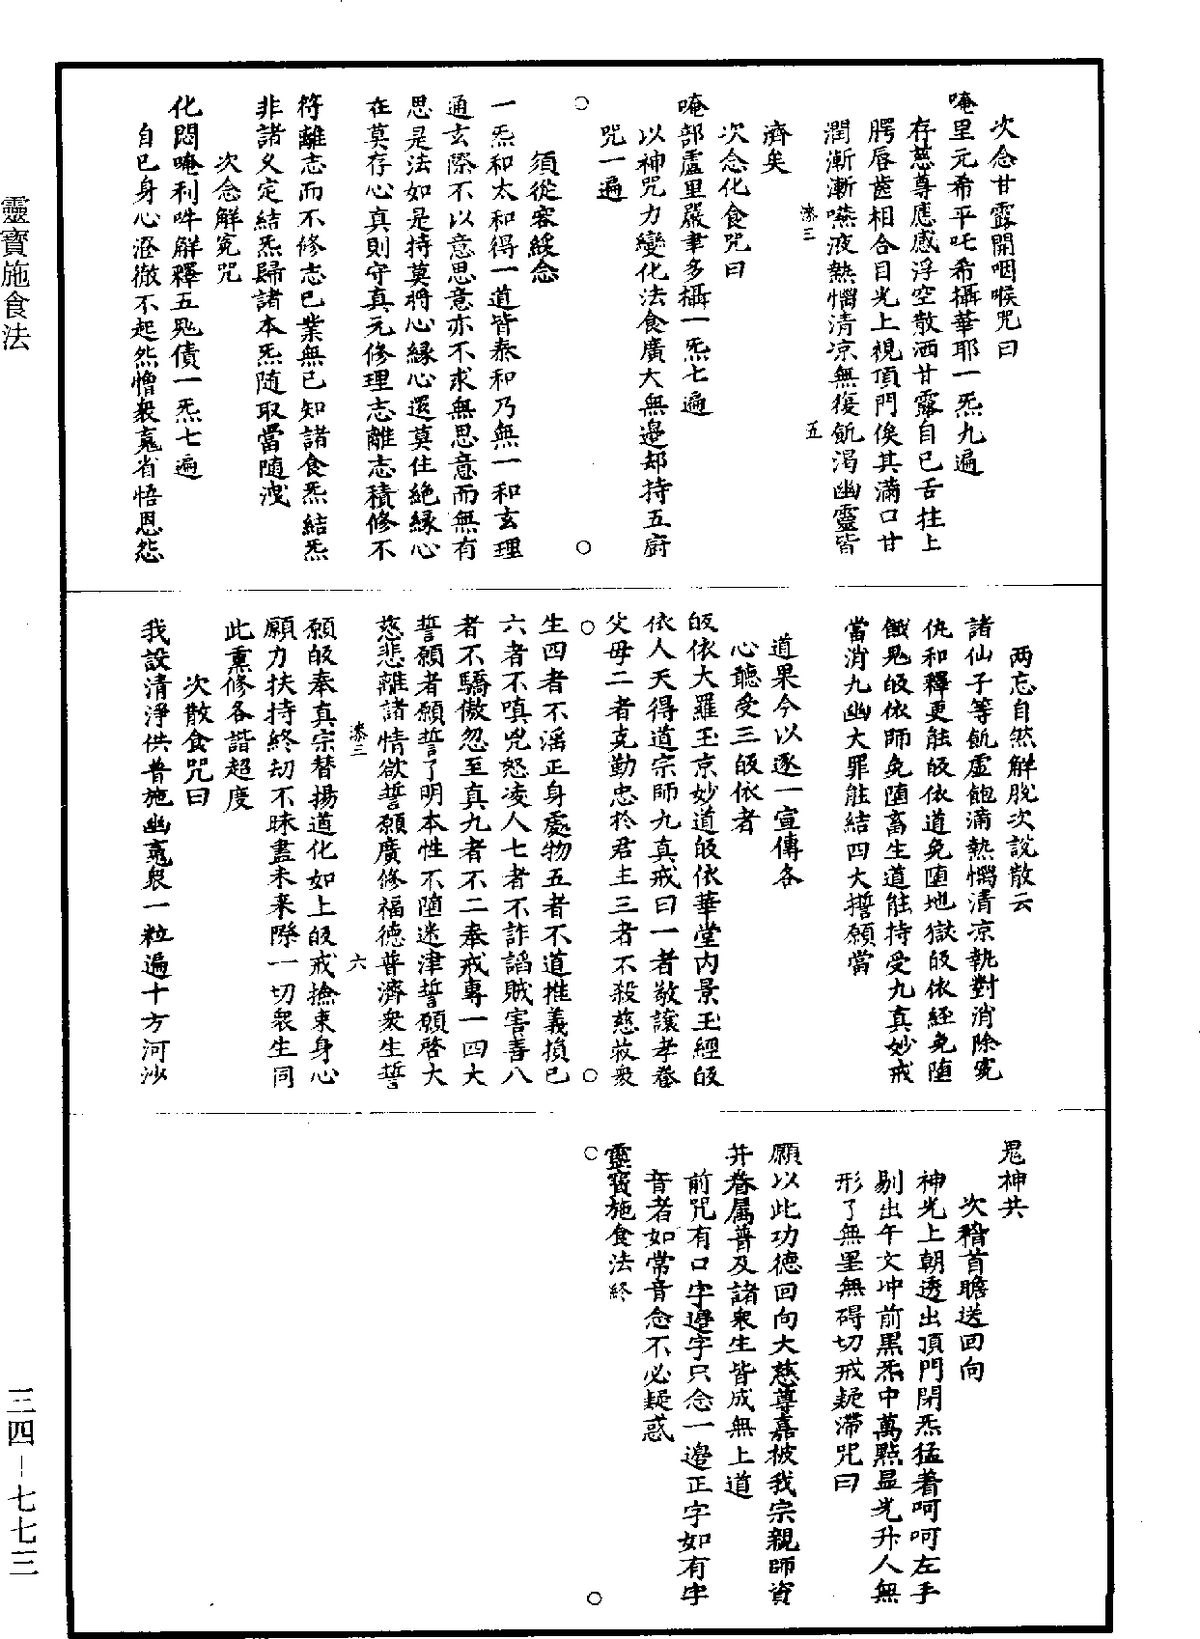 次念甘露開咽喉咒曰
唵里元希平吒希攝華耶一炁九遍
存慈尊應感浮空散洒甘露自已舌拄上
腭唇齒相合目光上視頂門俟其滿口甘
潤漸漸嚥液熱惱清凉無復飢渴幽靈皆
濟矣
次念化食咒曰
唵部盧里嚴聿多攝一炁七遍
以神咒力變化法食廣大無邊却持五廚
咒一遍
須從容緩念
一炁和太和得一道皆泰和乃無一和玄理
通玄際不以意思意亦不求無思意而無有
思是法如是持莫將心緣心還莫住絶緣心
在莫存心真則守真元修理志離志積修不
符離志而不修志已業無已知諸食炁結炁
非諸久定結炁歸諸本炁隨取當隨洩
次念解冤咒
化悶唵利吽解釋五鬼債一炁七遍
自已身心澄徹不起然憎衆䰟省悟恩怨
两忘自然解脫次說散云
諸仙子等飢虛飽滿熱惱清凉執對消除冤
仇和釋更能皈依道免墮地獄皈依經免墮
餓鬼皈依師免墮畜生道能持受九真妙戒
當消九幽大罪能結四大誓願當
道果今以逐一宣傳各
心聽受三皈依者
皈依大羅玉京妙道皈依華堂内景玉經皈
依人天得道宗師九真戒曰一者敬讓孝養
父母二者克勤忠於君主三者不殺慈救衆
生四者不滛正身處物五者不道推義損已
六者不嗔兇怒凌人七者不詐謟賊害善八
者不驕傲忽至真九者不二奉戒專一四大
誓願者願誓了明本性不墮迷津誓願啓大
慈悲離諸情欲誓願廣修福德普濟衆生誓
願皈奉真宗替揚道化如上皈戒撿束身心
願力扶持終刧不昧盡未来際一切衆生同
此熏修各諧超度
次散食咒曰
我設清淨供普施幽䰟衆一粒遍十方河沙
鬼神共
次稽首瞻送回向
神光上朝透出頂門閉炁猛着呵呵左手
剔出午文冲前黑炁中萬點显光升人無
形了無罣無碍切戒疑滯咒曰
願以此功德回向大慈尊嘉被我宗親師資
并眷属普及諸衆生皆成無上道
前咒有口字邊字只念一邉正字如有字
音者如常音念不必疑惑
靈寶施食法終
靈寶施食法
三四－七七三